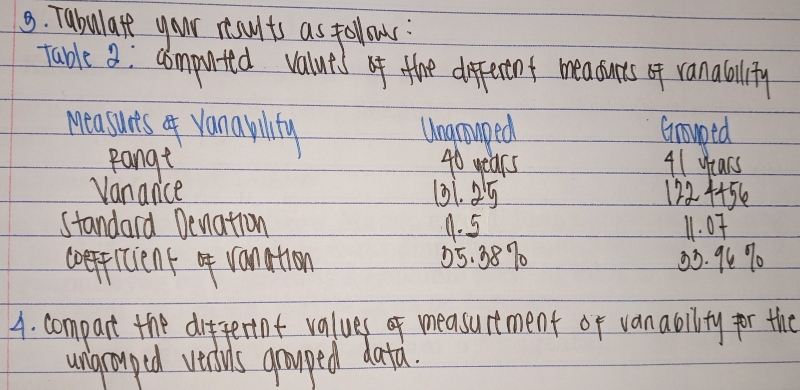 3. Tabulate your results as follows:
Table 2: computed values of the different measures of variability
Measures of Variability Ungrouped Grouped
Range 40 years 41 years
Variance 131.25 122.4456
Standard Deviation 11.5 11.07
Coefficient of variation 35.38% 33.96%
4. Compare the different values of measurement of variability for the
ungrouped versus grouped data.